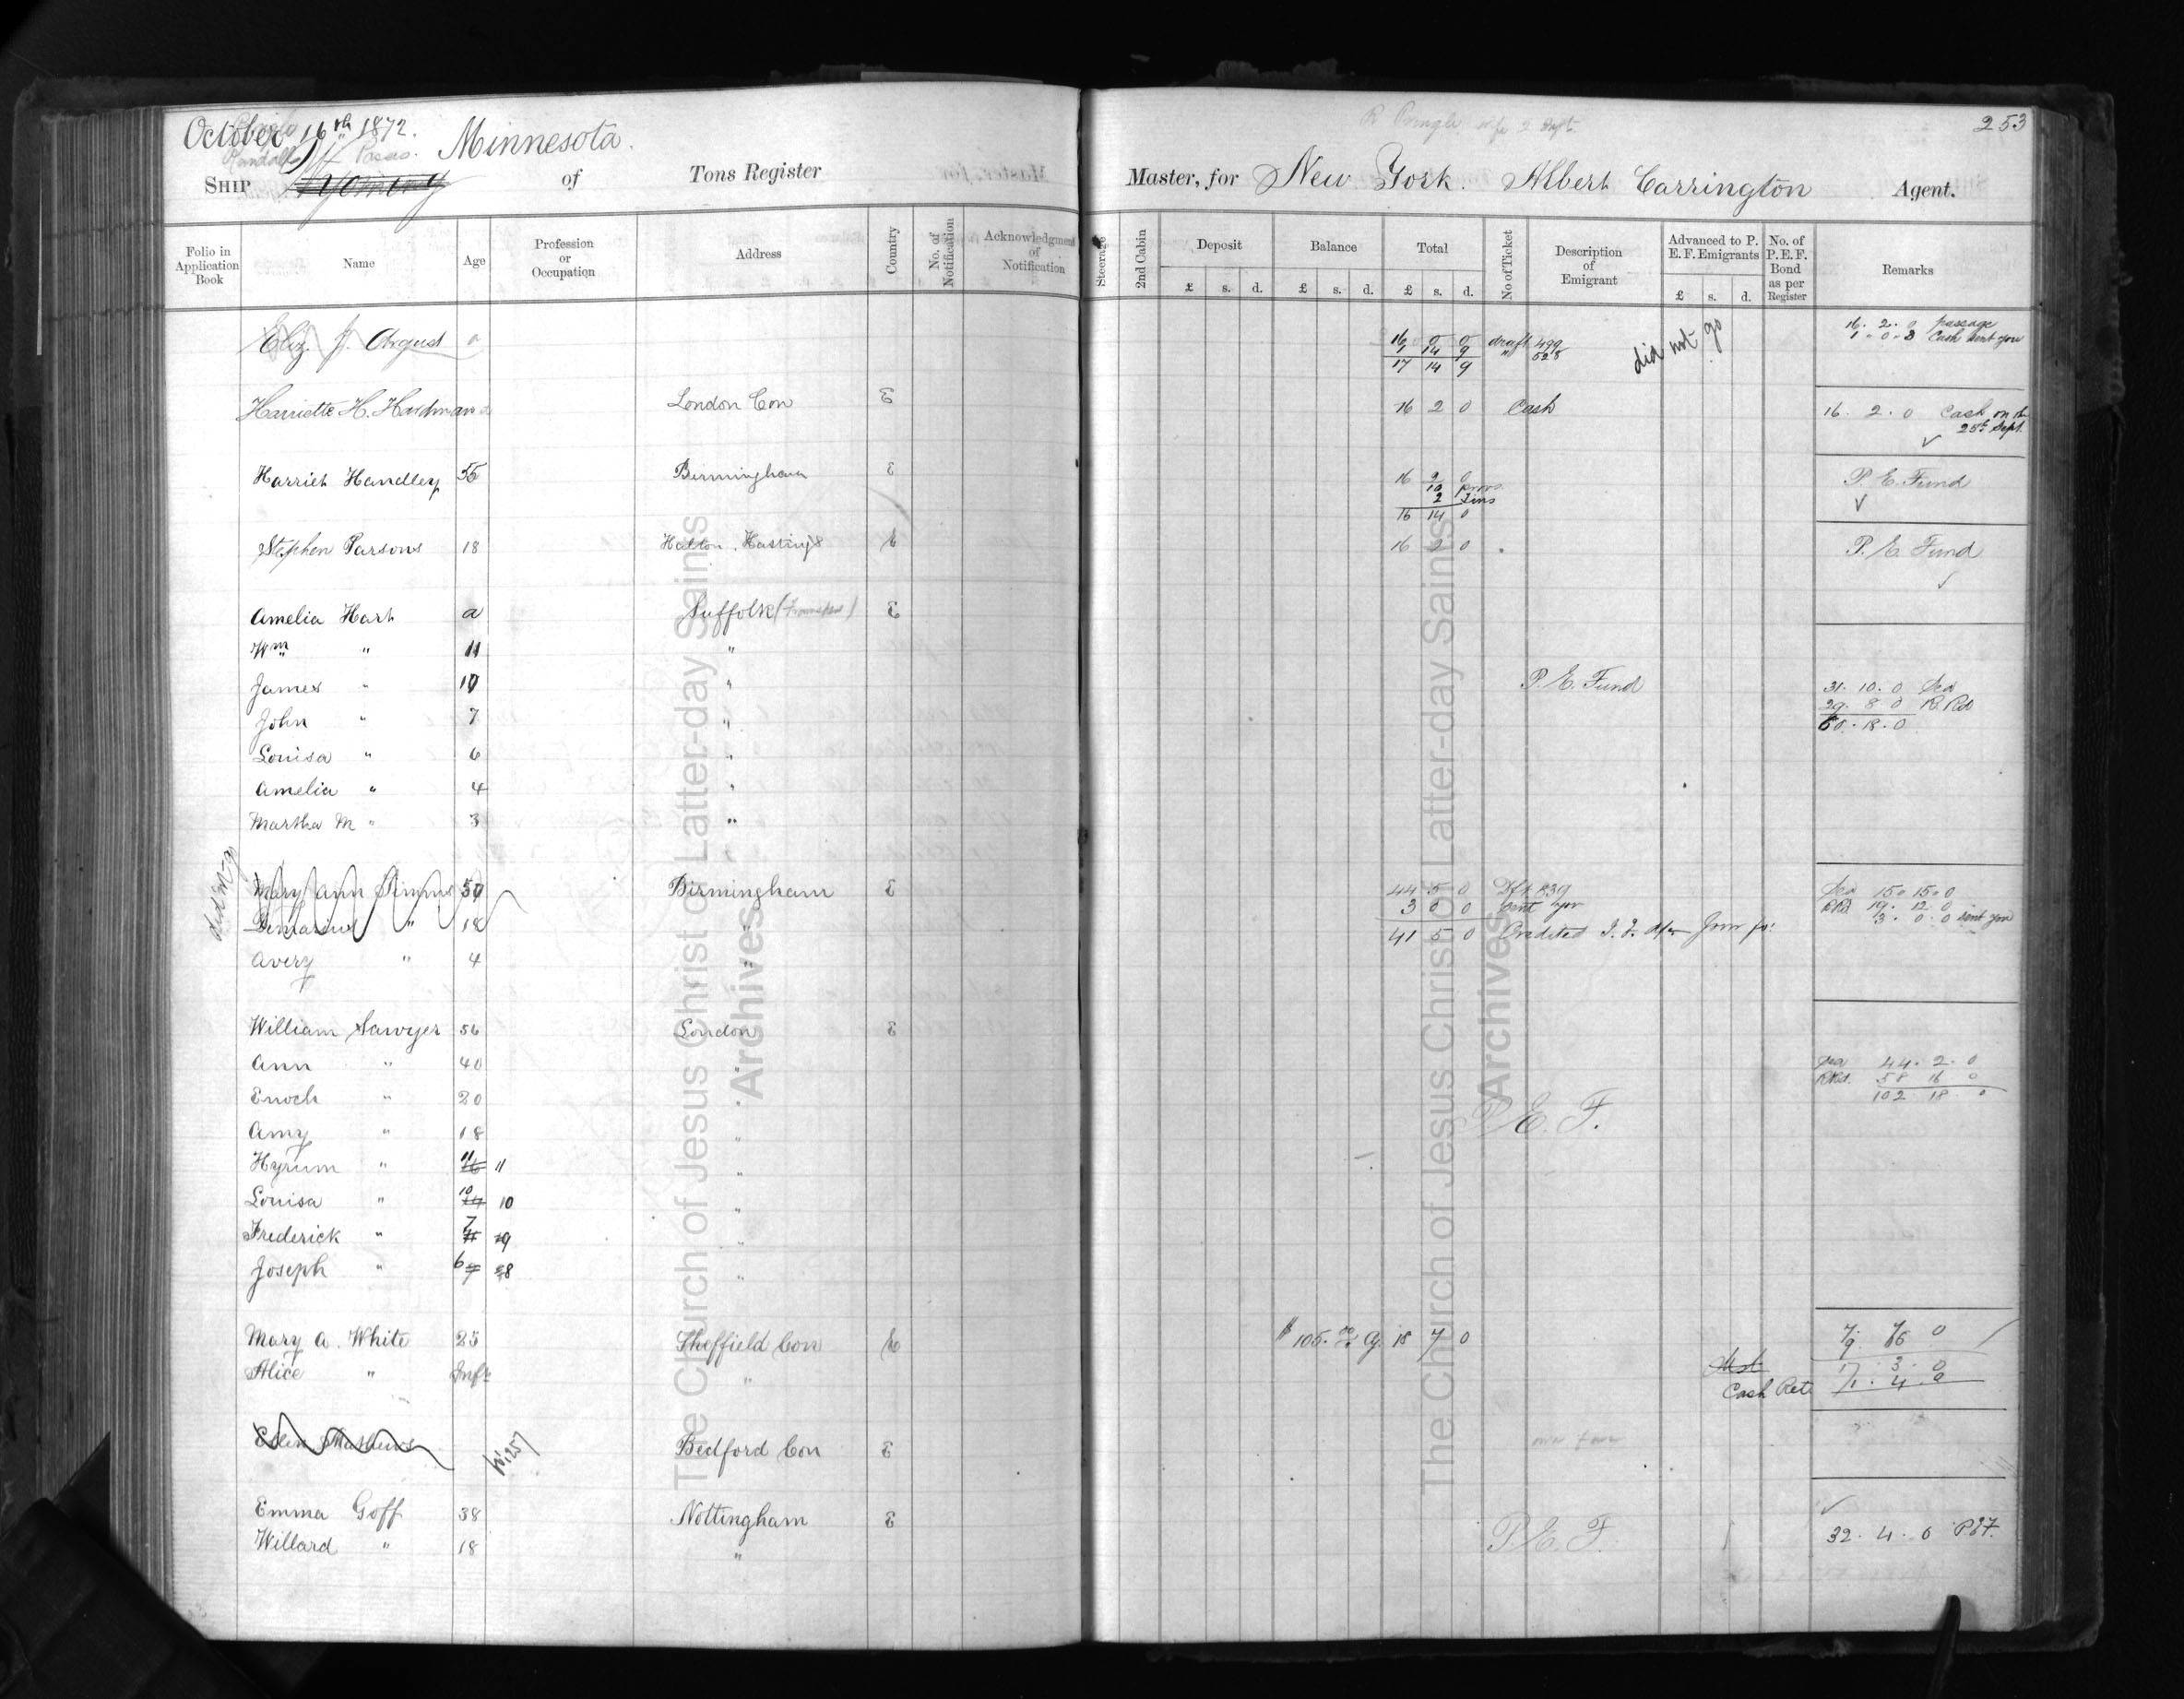 October 16th 1872. Minnesota.
Ship Wyoming of Tons Register
Folio in Application Book | Name | Age | Profession or Occupation | Address | Country | No. of Notification | Acknowledgment of Notification
Eliz. J. August a
Harriette H. Hardman a London Con E
Harriet Handley 55 Birmingham E
Stephen Parsons 18 Halton, Hastings E
Amelia Hart a Suffolk E
Wm " 11 "
James " 10 "
John " 7 "
Louisa " 6 "
Amelia " 4 "
Martha M " 3 "
did not go
Mary Ann Timms 50 Birmingham E
" 18 "
Avery " 4 "
William Sawyer 56 London E
Ann " 40
Enoch " 20 "
Amy " 18 "
Hyrum " 16 11 11 "
Louisa " 14 10 10 "
Frederick " 11 7 9 "
Joseph " 7 6 8 "
Mary A. White 25 Sheffield Con E
Alice " Inft "
Ellen Mathews Bedford Con E
Emma Goff 38 Nottingham E
Willard " 18 "
253
Master, for New York. Albert Carrington Agent.
Steerage | 2nd Cabin | Deposit | Balance | Total | No of Ticket | Description of Emigrant | Advanced to P. E. F. Emigrants | No. of P. E. F. Bond as per Register | Remarks
£ s. d. £ s. d. £ s. d. £ s. d.
16 0 0 draft 499 did not go 16. 2. 0 passage
1 14 9 " 528 1. 0. 3 Cash sent you
17 14 9
16 2 0 Cash 16. 2. 0 Cash on the
25th Sept.
16 2 0 P. E. Fund
10 provs
2 Tins
16 14 0
16 2 0 P. E. Fund
P. E. Fund 31. 10. 0 Sea
29. 8 0 R. Rd
60. 18. 0
44 5 0 Dft 839 Sea 15. 15. 0
3 0 0 sent you RRd 19. 12. 0
3. 0. 0 sent you
41 5 0 Credited
Sea 44. 2. 0
RRd. 58 16 0
102 18 0
P. E. F.
$ 105. 18 7 0
17. 3. 0
Cash Retd 1. 4. 0
P. E. F. 32. 4. 0 PEF.
The Church of Jesus Christ of Latter-day Saints
Archives
The Church of Jesus Christ of Latter-day Saints
Archives